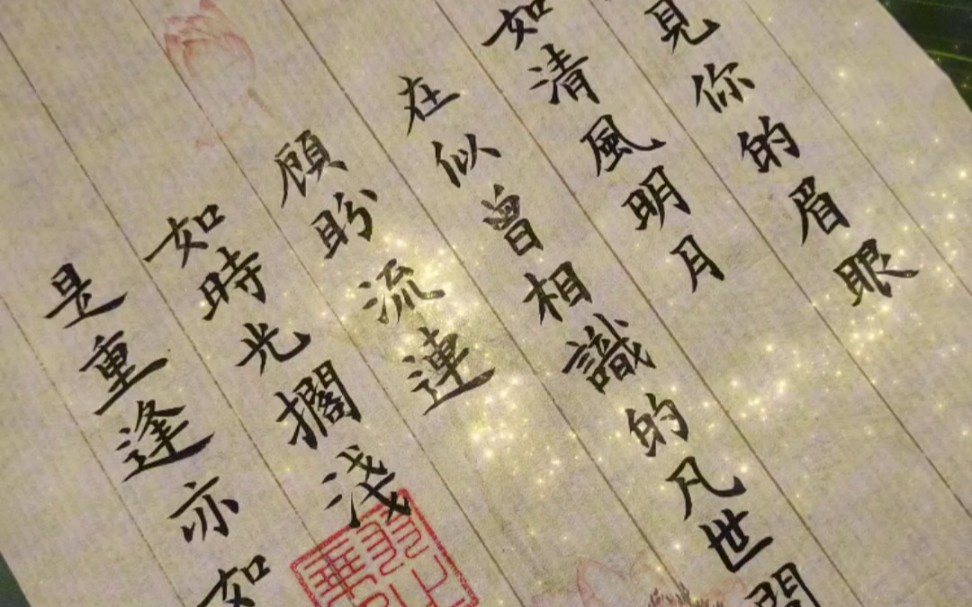 見你的眉眼
如清風明月
在似曾相識的凡世間
顧盼流連
如時光擱淺
是重逢亦如